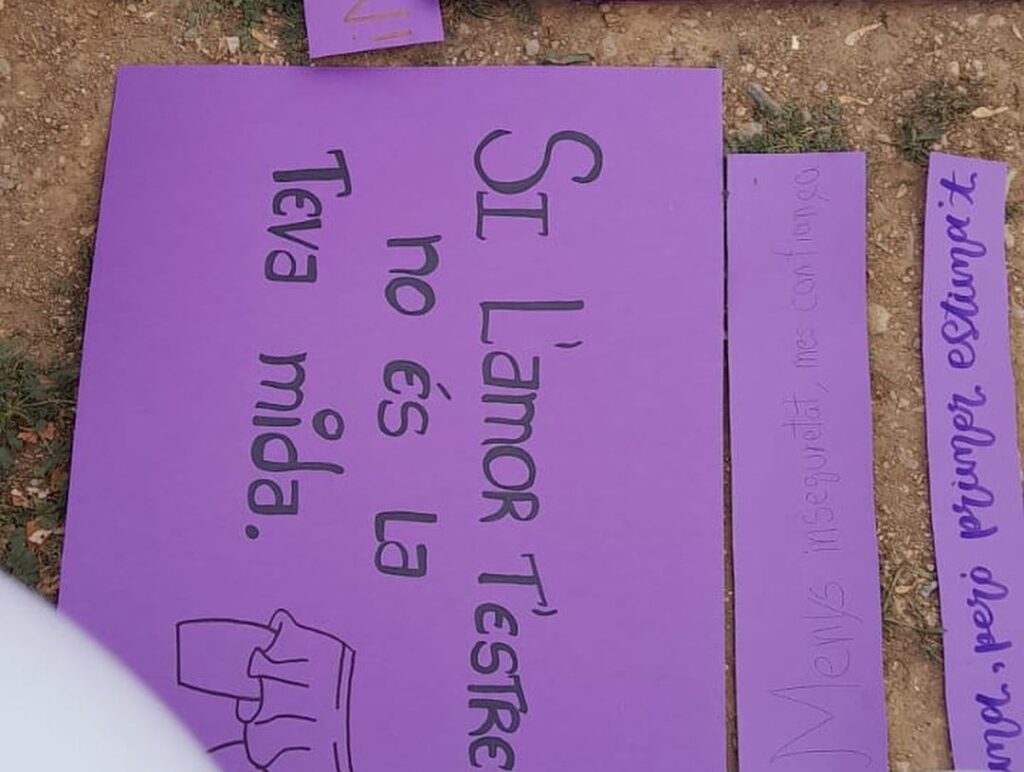 SI L'amor T'ESTRE
no és La
Teva mida.
Menys inseguretat, mes confiança
ma, però primer estima't